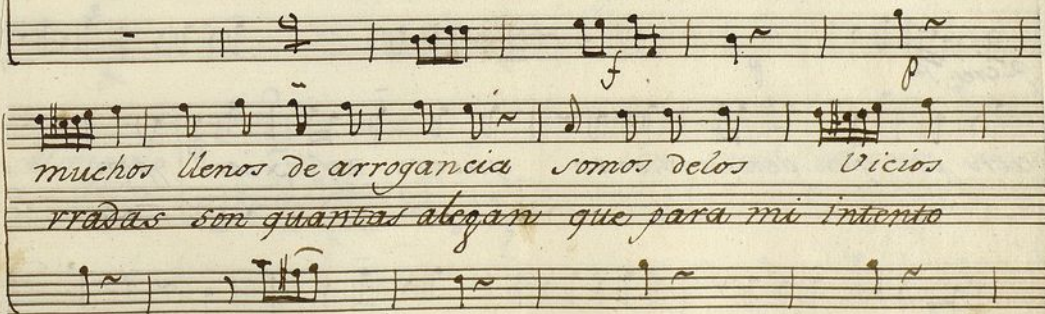 f p
muchos llenos de arrogancia somos delos Vicios
rradas son quantas alegan que para mi intento